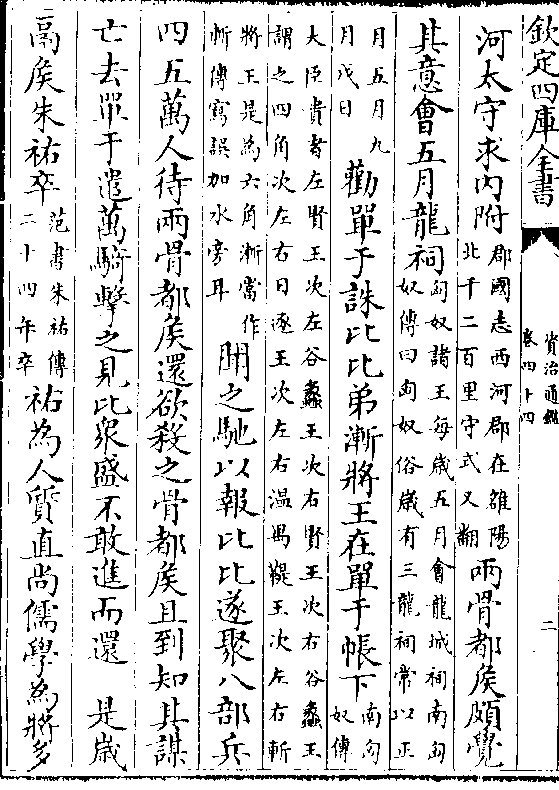 欽定四庫全書
資治通鑑
卷四十四
二
河太守求內附郡國志西河郡在雒陽
北千二百里守式又翻兩骨都侯頗覺
其意會五月龍祠匈奴諸王每歲五月會龍城祠南匈
奴傳曰匈奴俗歲有三龍祠常以正
月五月九
月戊日勸單于誅比比弟漸將王在單于帳下南匈
奴傳
大臣貴者左賢王次左谷蠡王次右賢王次右谷蠡王
謂之四角次左右日逐王次左右温禺鞮王次左右斬
將王是為六角漸當作
斬傳寫誤加水旁耳聞之馳以報比比遂聚八部兵
四五萬人待兩骨都侯還欲殺之骨都侯且到知其謀
亡去單于遣萬騎擊之見比衆盛不敢進而還 是歲
鬲侯朱祐卒范書朱祐傳
二十四年卒祐為人質直尚儒學為將多